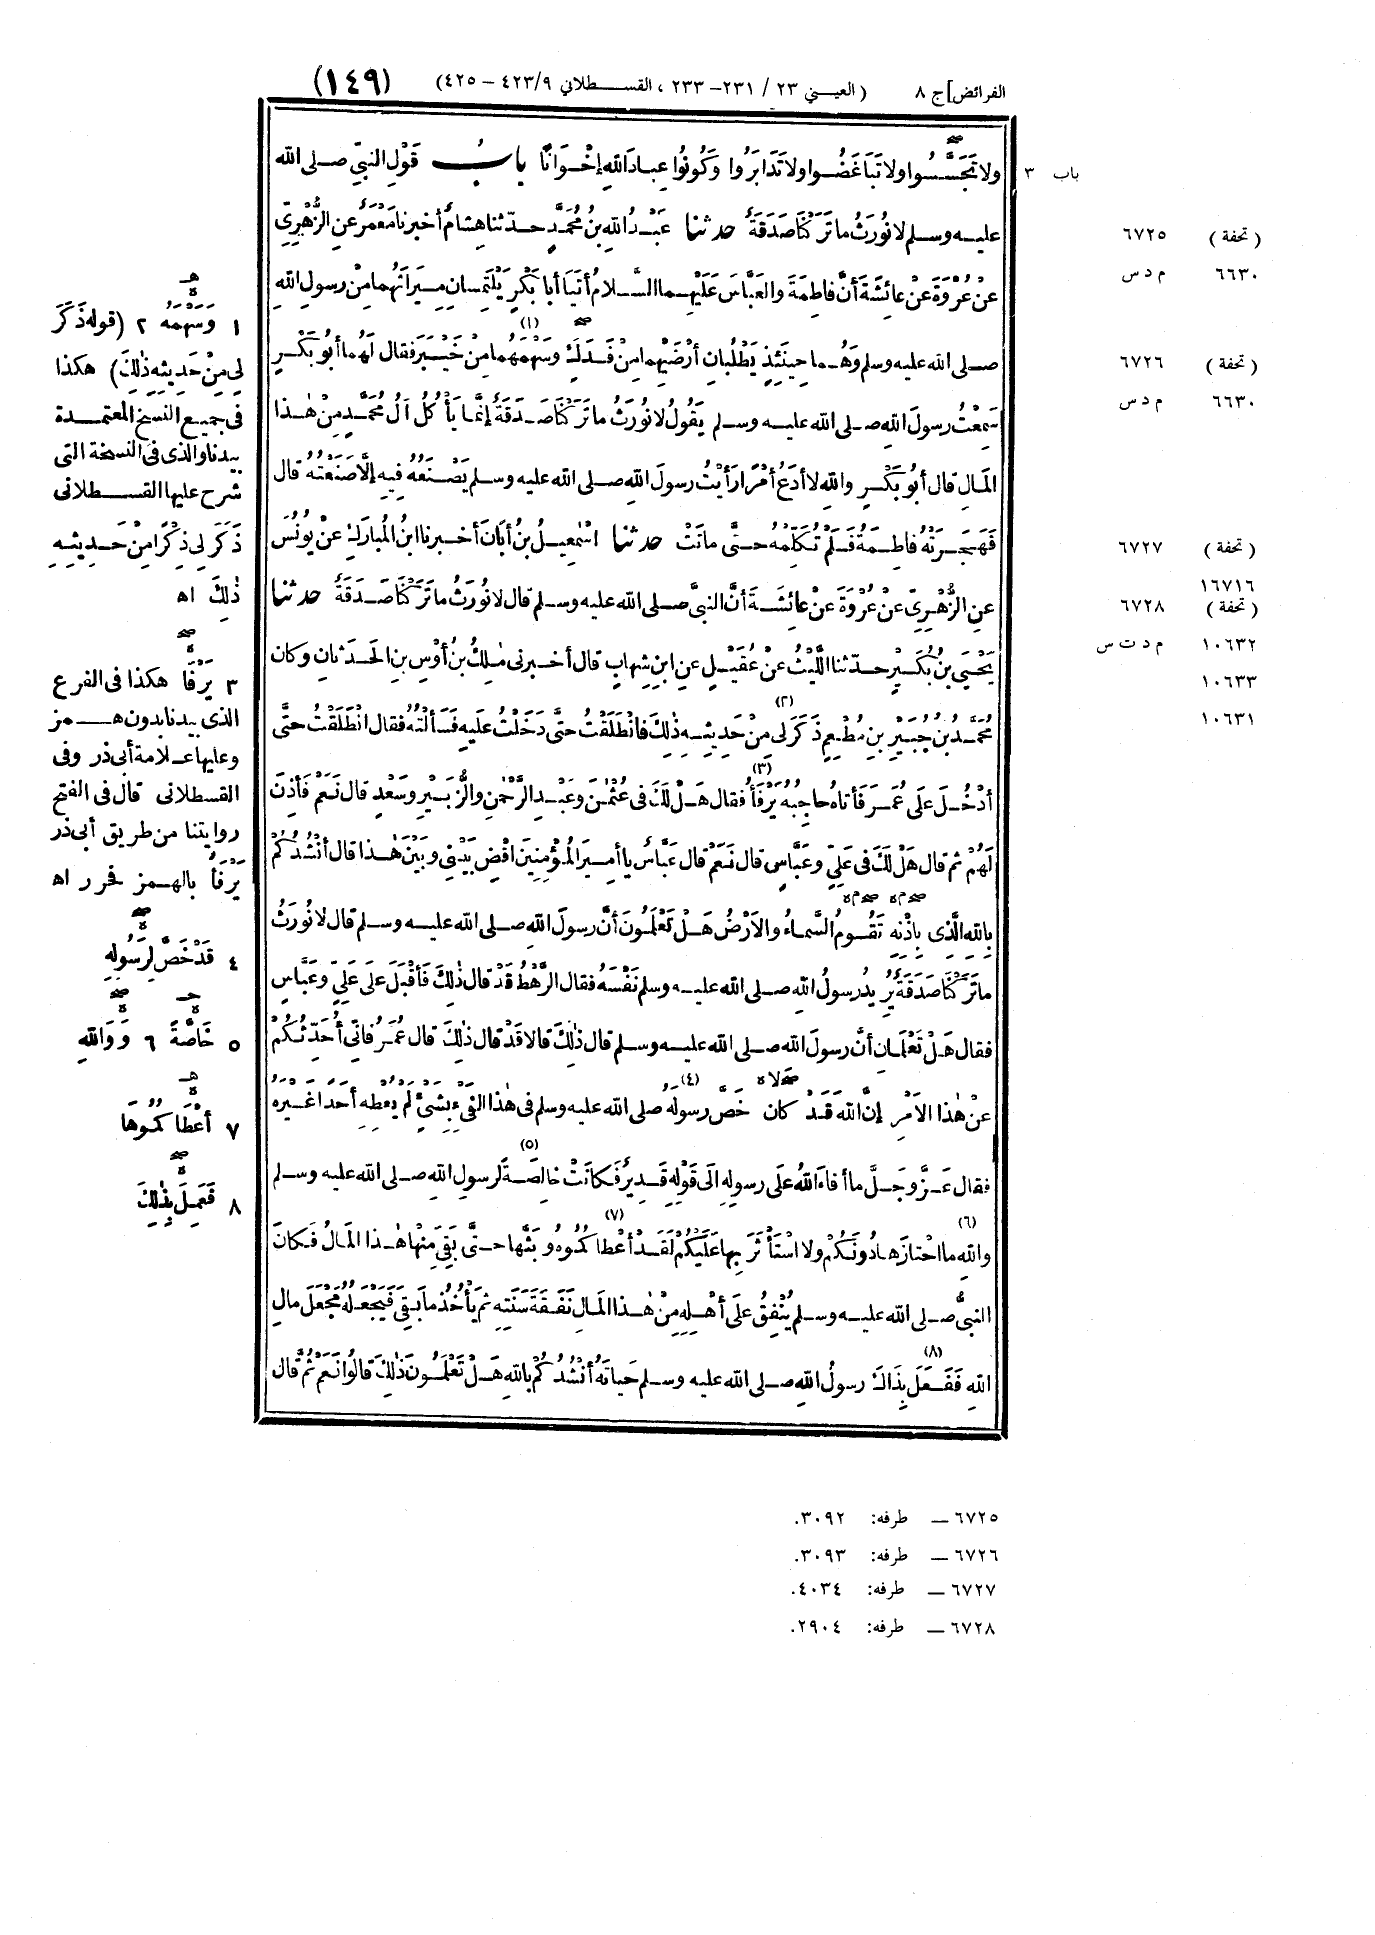 الفرائض] ج ٨ (العيني ٢٣ / ٢٣١ – ٢٣٣ ، القسطلاني ٤٢٣/٩ – ٤٢٥) (١٤٩)
ولا تجَسَّسُوا ولا تَبَاغَضُوا ولا تَدَابَرُوا وَكُونُوا عِبادَ اللهِ إخْوَانًا بابُ قَوْلِ النبيّ صلى الله
عليه وسلم لا نُورَثُ ما تَرَكْنَا صَدَقَةٌ حدثنا عَبْدُ اللهِ بنُ مُحَمَّدٍ حدّثنا هِشامٌ أخبرنا مَعْمَرٌ عنِ الزُّهْرِيّ
عنْ عُرْوَةَ عنْ عائِشَةَ أنَّ فاطِمَةَ والعَبَّاسَ عَلَيْهِما السَّلامُ أتَيَا أبا بَكْرٍ يَلْتَمِسانِ مِيرَاثَهُما مِنْ رسولِ اللهِ
صلى الله عليه وسلم وَهُما حِينَئِذٍ يَطْلُبانِ أرْضَيْهِما مِنْ فَدَكَ وسَهْمَهُما (١) مِنْ خَيْبَرَ فقال لَهُما أبُو بَكْرٍ
سَمِعْتُ رسولَ اللهِ صلى الله عليه وسلم يَقُولُ لا نُورَثُ ما تَرَكْنَا صَدَقَةٌ إنَّما يَأْكُلُ آلُ مُحَمَّدٍ مِنْ هٰذا
المَالِ قال أبُو بَكْرٍ واللهِ لا أدَعُ أمْرًا رَأيْتُ رسولَ اللهِ صلى الله عليه وسلم يَصْنَعُهُ فِيهِ إلَّا صَنَعْتُهُ قال
فَهَجَرَتْهُ فاطِمَةُ فَلَمْ تُكَلِّمْهُ حتَّى ماتَتْ حدثنا اسْمٰعِيلُ بنُ أبَانَ أخبرنا ابنُ المُبارَكِ عنْ يُونُسَ
عنِ الزُّهْرِيّ عنْ عُرْوَةَ عنْ عائِشَةَ أنَّ النبيَّ صلى الله عليه وسلم قال لا نُورَثُ ما تَرَكْنَا صَدَقَةٌ حدثنا
يَحْيَى بنُ بُكَيْرٍ حدّثنا اللَّيْثُ عنْ عُقَيْلٍ عنِ ابنِ شِهابٍ قال أخبرني مٰلِكُ بنُ أوْسِ بنِ الحَدَثانِ وكان
مُحَمَّدُ بنُ جُبَيْرِ بنِ مُطْعِمٍ ذَكَرَ لِي (٢) مِنْ حَدِيثِهِ ذٰلِكَ فانْطَلَقْتُ حتَّى دَخَلْتُ عليهِ فَسَألْتُهُ فقال انْطَلَقْتُ حتَّى
أدْخُلَ علَى عُمَرَ فَأتاهُ حاجِبُهُ يَرْفَأُ (٣) فقال هَلْ لَكَ في عُثْمٰنَ وعَبْدِ الرَّحْمٰنِ والزُّبَيْرِ وسَعْدٍ قال نَعَمْ فَأذِنَ
لَهُمْ ثم قال هَلْ لَكَ في عَلِيٍّ وعَبَّاسٍ قال نَعَمْ قال عَبَّاسٌ يا أمِيرَ المُؤْمِنِينَ اقْضِ بَيْنِي وبَيْنَ هٰذا قال أنْشُدُكُمْ
بِاللهِ الَّذِي بِإذْنِهِ تَقُومُ السَّماءُ والأرْضُ هَلْ تَعْلَمُونَ أنَّ رسولَ اللهِ صلى الله عليه وسلم قال لا نُورَثُ
ما تَرَكْنَا صَدَقَةٌ يُرِيدُ رسولُ اللهِ صلى الله عليه وسلم نَفْسَهُ فقال الرَّهْطُ قَدْ قال ذٰلِكَ فَأقْبَلَ علَى عَلِيٍّ وعَبَّاسٍ
فقال هَلْ تَعْلَمانِ أنَّ رسولَ اللهِ صلى الله عليه وسلم قال ذٰلِكَ قالا قَدْ قال ذٰلِكَ قال عُمَرُ فإنّي أُحَدِّثُكُمْ
عنْ هٰذا الأمْرِ إنَّ اللهَ قَدْ كان خَصَّ رسولَهُ (٤) صلى الله عليه وسلم في هٰذا الفَيْءِ بِشَيْءٍ لَمْ يُعْطِهِ أحَدًا غَيْرَهُ
فقال عَزَّ وجَلَّ ما أفاءَ اللهُ علَى رسولِهِ إلَى قَوْلِهِ قَدِيرٌ فَكانَتْ خالِصَةً (٥) لرسولِ اللهِ صلى الله عليه وسلم
واللهِ (٦) ما احْتازَها دُونَكُمْ ولا اسْتَأْثَرَ بِها عَلَيْكُمْ لَقَدْ أعْطاكُمُوهُ (٧) وبَثَّها حتَّى بَقِيَ مِنْها هٰذا المَالُ فَكانَ
النبيُّ صلى الله عليه وسلم يُنْفِقُ علَى أهْلِهِ مِنْ هٰذا المَالِ نَفَقَةَ سَنَتِهِ ثم يَأْخُذُ ما بَقِيَ فَيَجْعَلُهُ مَجْعَلَ مالِ
اللهِ فَفَعَلَ (٨) بِذَاكَ رسولُ اللهِ صلى الله عليه وسلم حَياتَهُ أنْشُدُكُمْ بِاللهِ هَلْ تَعْلَمُونَ ذٰلِكَ قالُوا نَعَمْ ثُمَّ قال
باب ٣
(تحفة) ٦٧٢٥
٦٦٣٠ م د س
(تحفة) ٦٧٢٦
٦٦٣٠ م د س
(تحفة) ٦٧٢٧
١٦٧١٦
(تحفة) ٦٧٢٨
١٠٦٣٢ م د ت س
١٠٦٣٣
١٠٦٣١
١ وَسَهْمَهُ ٢ (قوله ذَكَرَ
لِي مِنْ حَدِيثِهِ ذٰلِكَ) هكذا
في جميع النسخ المعتمدة
بيدنا والذي في النسخة التي
شرح عليها القسطلاني
ذَكَرَ لِي ذِكْرًا مِنْ حَدِيثِهِ
ذٰلِكَ اه
٣ يَرْفَا هكذا في الفرع
الذي بيدنا بدون همز
وعليها علامة أبي ذر وفي
القسطلاني قال في الفتح
روايتنا من طريق أبي ذر
يَرْفَأُ بالهمز فحرر اه
٤ قَدْ خَصَّ لِرَسُولِهِ
٥ خَاصَّةً ٦ وَوَاللهِ
٧ أعْطَاكُمُوهَا
٨ فَعَمِلَ بِذٰلِكَ
٦٧٢٥ — طرفه: ٣٠٩٢.
٦٧٢٦ — طرفه: ٣٠٩٣.
٦٧٢٧ — طرفه: ٤٠٣٤.
٦٧٢٨ — طرفه: ٢٩٠٤.